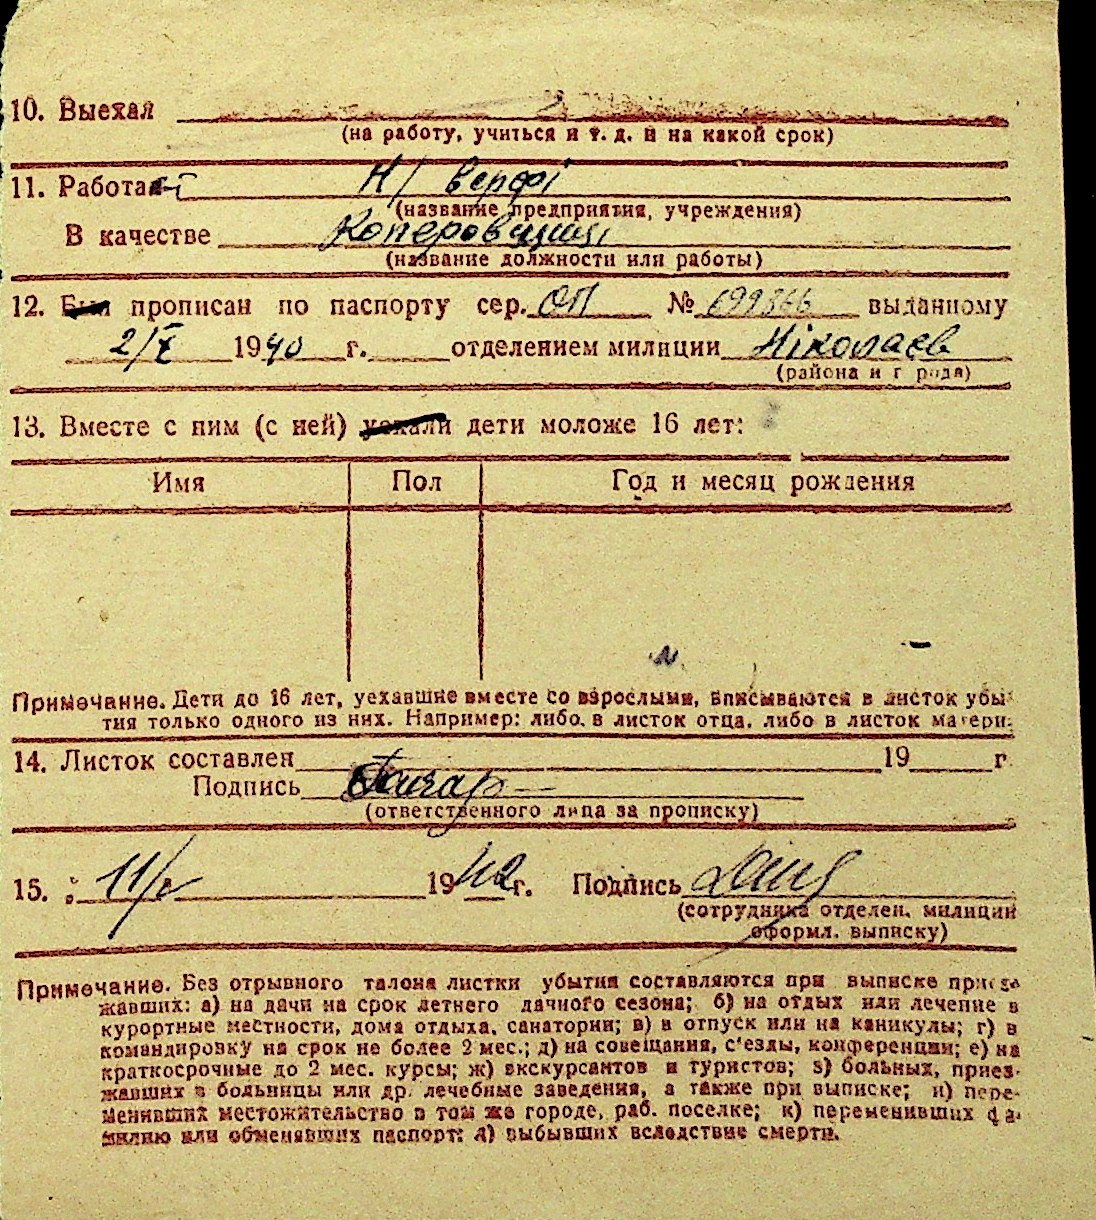 10. Выехал
(на работу, учиться и т. д. и на какой срок)
11. Работает Н/ верфі
(название предприятия, учреждения)
В качестве Коперовщиці
(название должности или работы)
12. Был прописан по паспорту сер. ОП № 699366 выданному
2/X 1940 г. отделением милиции Ніколаєв
(района и города)
13. Вместе с ним (с ней) уехали дети моложе 16 лет:
Имя Пол Год и месяц рождения
Примечание. Дети до 16 лет, уехавшие вместе со взрослыми, вписываются в листок убы-
тия только одного из них. Например: либо в листок отца, либо в листок матери.
14. Листок составлен 19 г.
Подпись
(ответственного лица за прописку)
15. 1942 г. Подпись
(сотрудника отделен. милиции
оформл. выписку)
Примечание. Без отрывного талона листки убытия составляются при выписке приез-
жавших: а) на дачи на срок летнего дачного сезона; б) на отдых или лечение в
курортные местности, дома отдыха, санатории; в) в отпуск или на каникулы; г) в
командировку на срок не более 2 мес.; д) на совещания, с'езды, конференции; е) на
краткосрочные до 2 мес. курсы; ж) экскурсантов и туристов; з) больных, приез-
жавших в больницы или др. лечебные заведения, а также при выписке; и) пере-
менивших местожительство в том же городе, раб. поселке; к) переменивших фа-
милию или обменявших паспорт; л) выбывших вследствие смерти.